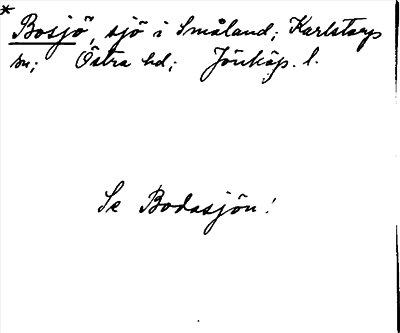 * Bosjö, sjö i Småland; Karlstorps
sn; Östra hd; Jönköp. l.
Se Bodasjön!